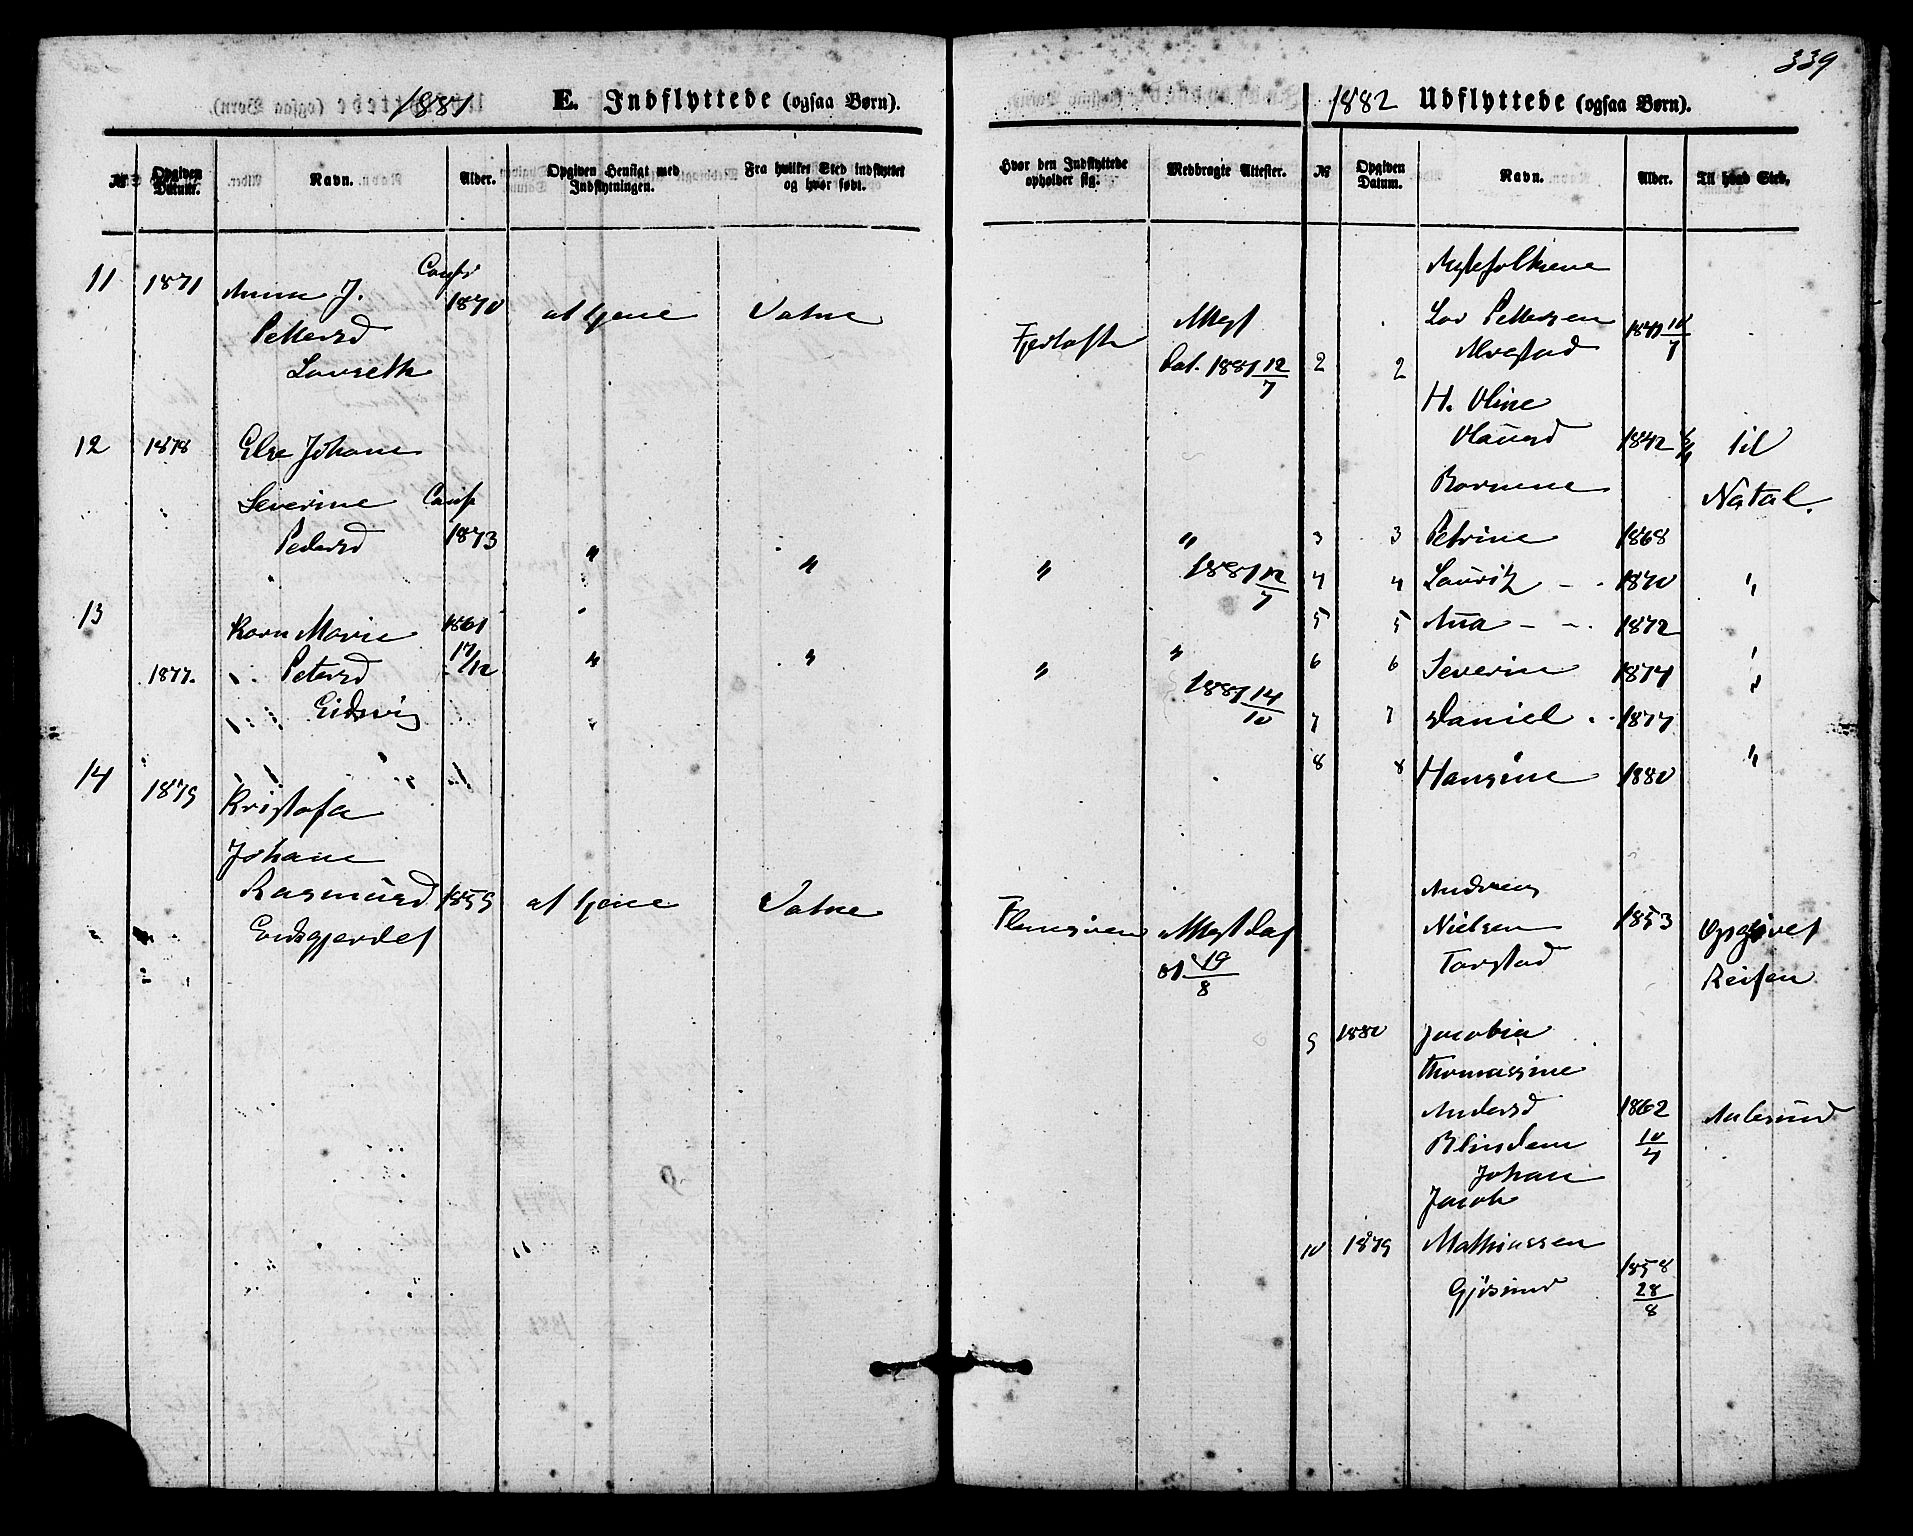 339
1881 E. Indflyttede (ogsaa Børn).
№
Opgiven Datum.
Navn.
Alder.
Opgiven Hensigt med Indflytningen.
Fra hvilket Sted indflyttet og hvor født.
Hvor den Indflyttede opholder sig.
Medbragte Attester.
11 1871 Anna J. Conf.
Pettersd 1870 at tjene Vatne Fjørtoft Attest
Lauseth Dat. 1881 12/7
12 1878 Else Johane
Severine Conf
Pedersd 1873 " " " "
1881 12/7
13 Karn Marie 1861
1877. Petersd 17/12 " " " "
Eidsvig 1881 14/10
14 1879 Kristofa
Johane
Rasmusd 1859 at tjene Vatne Flemsøen Attest Dat
Endsgjerdet 81 19/8
1882 Udflyttede (ogsaa Børn).
№
Opgiven Datum.
Navn.
Alder.
Til hvad Sted.
Ægtefolkene
Lar Pettersen 1841 10/7
Alvestad
2 2
H. Oline
Olausd 1842 til
Børnene Natal.
3 3 Petrine 1868
4 4 Lauritz - - 1870 "
5 5 Ana - - 1872 "
6 6 Severin 1874 "
7 7 Daniel - - 1877
8 8 Hansine 1880 "
Andreas
Nielsen 1853 Opgivet
Tarstad Reisen
9 1880 Jacobia
Thomassine
Andersd 1862 Aalesund
Blindem 10/4
Johan
Jacob
10 1879 Mathiassen
1858
Gjøsund 28/8